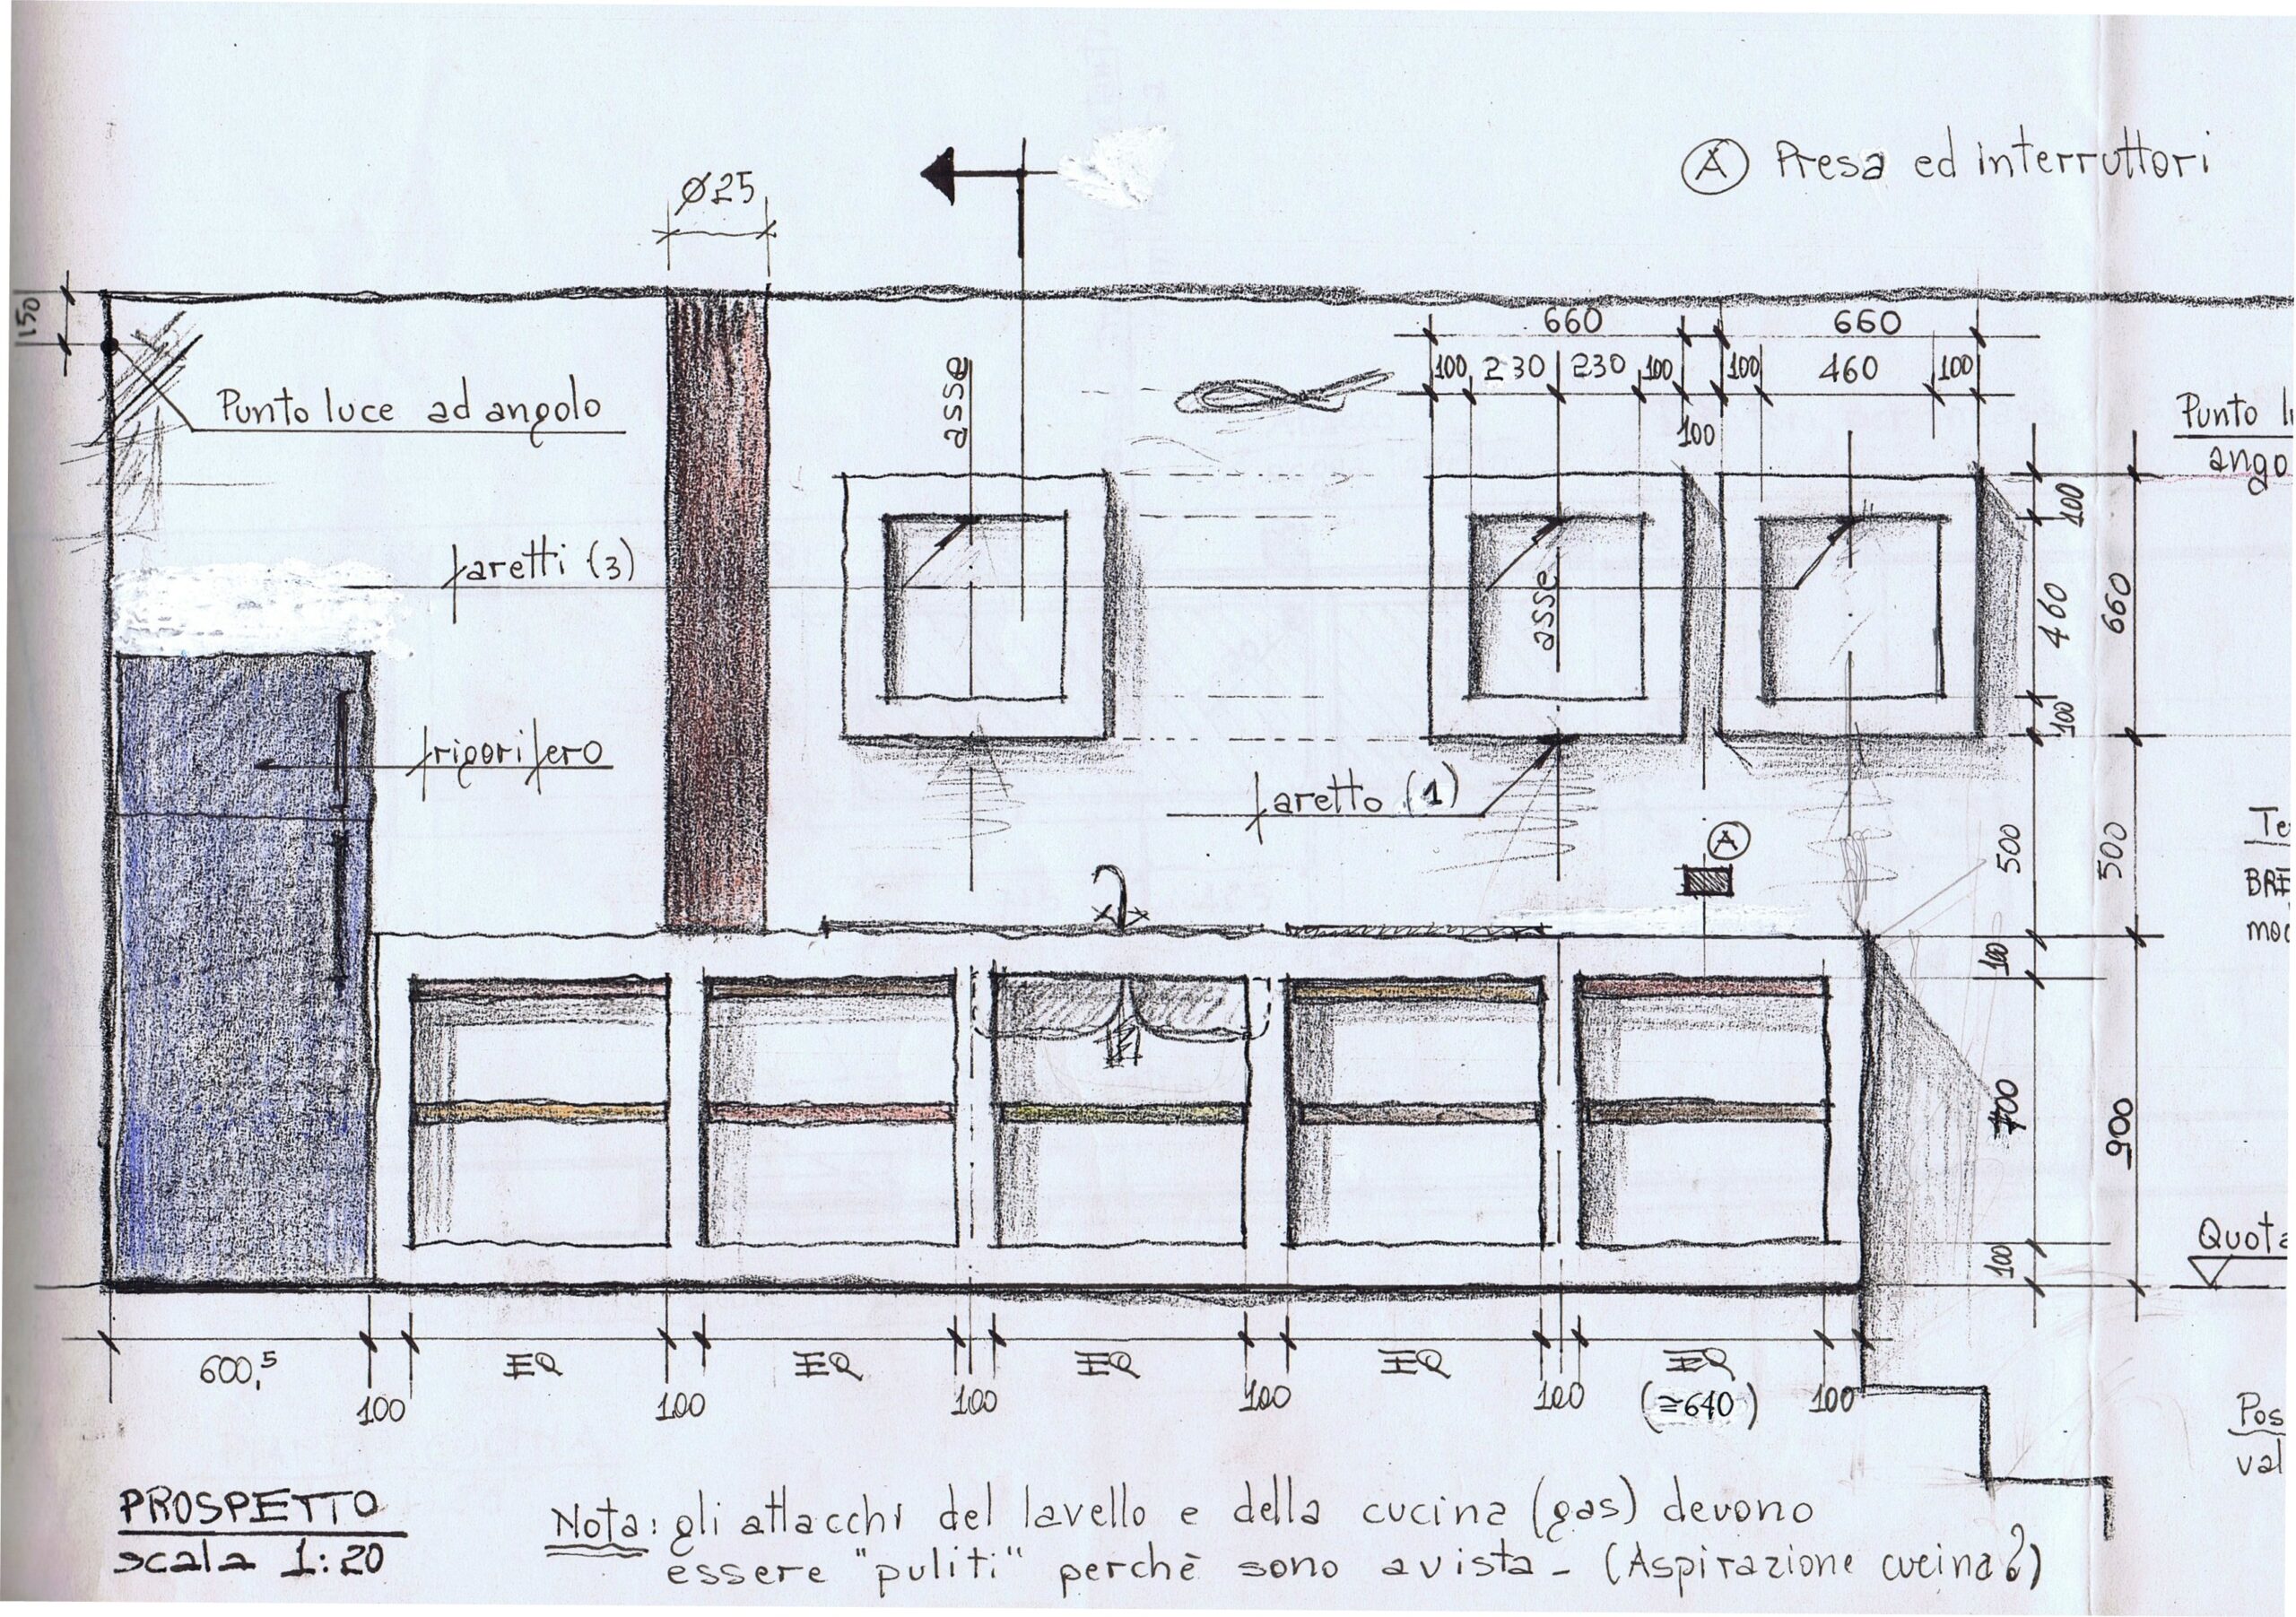 Ⓐ Presa ed interruttori
Ø25
150
660
660
100
230
230
100
100
460
100
100
Punto luce ad angolo
asse
Punto
ango
faretti (3)
asse
100
460
660
100
frigorifero
faretto (1)
Ⓐ
500
500
100
700
900
100
Te
mod
Quota
600,5
EQ
EQ
EQ
EQ
EQ
100
100
100
100
100
(≅640)
100
Pos
val
PROSPETTO
scala 1:20
Nota: gli attacchi del lavello e della cucina (gas) devono
essere "puliti" perchè sono a vista - (Aspirazione cucina?)